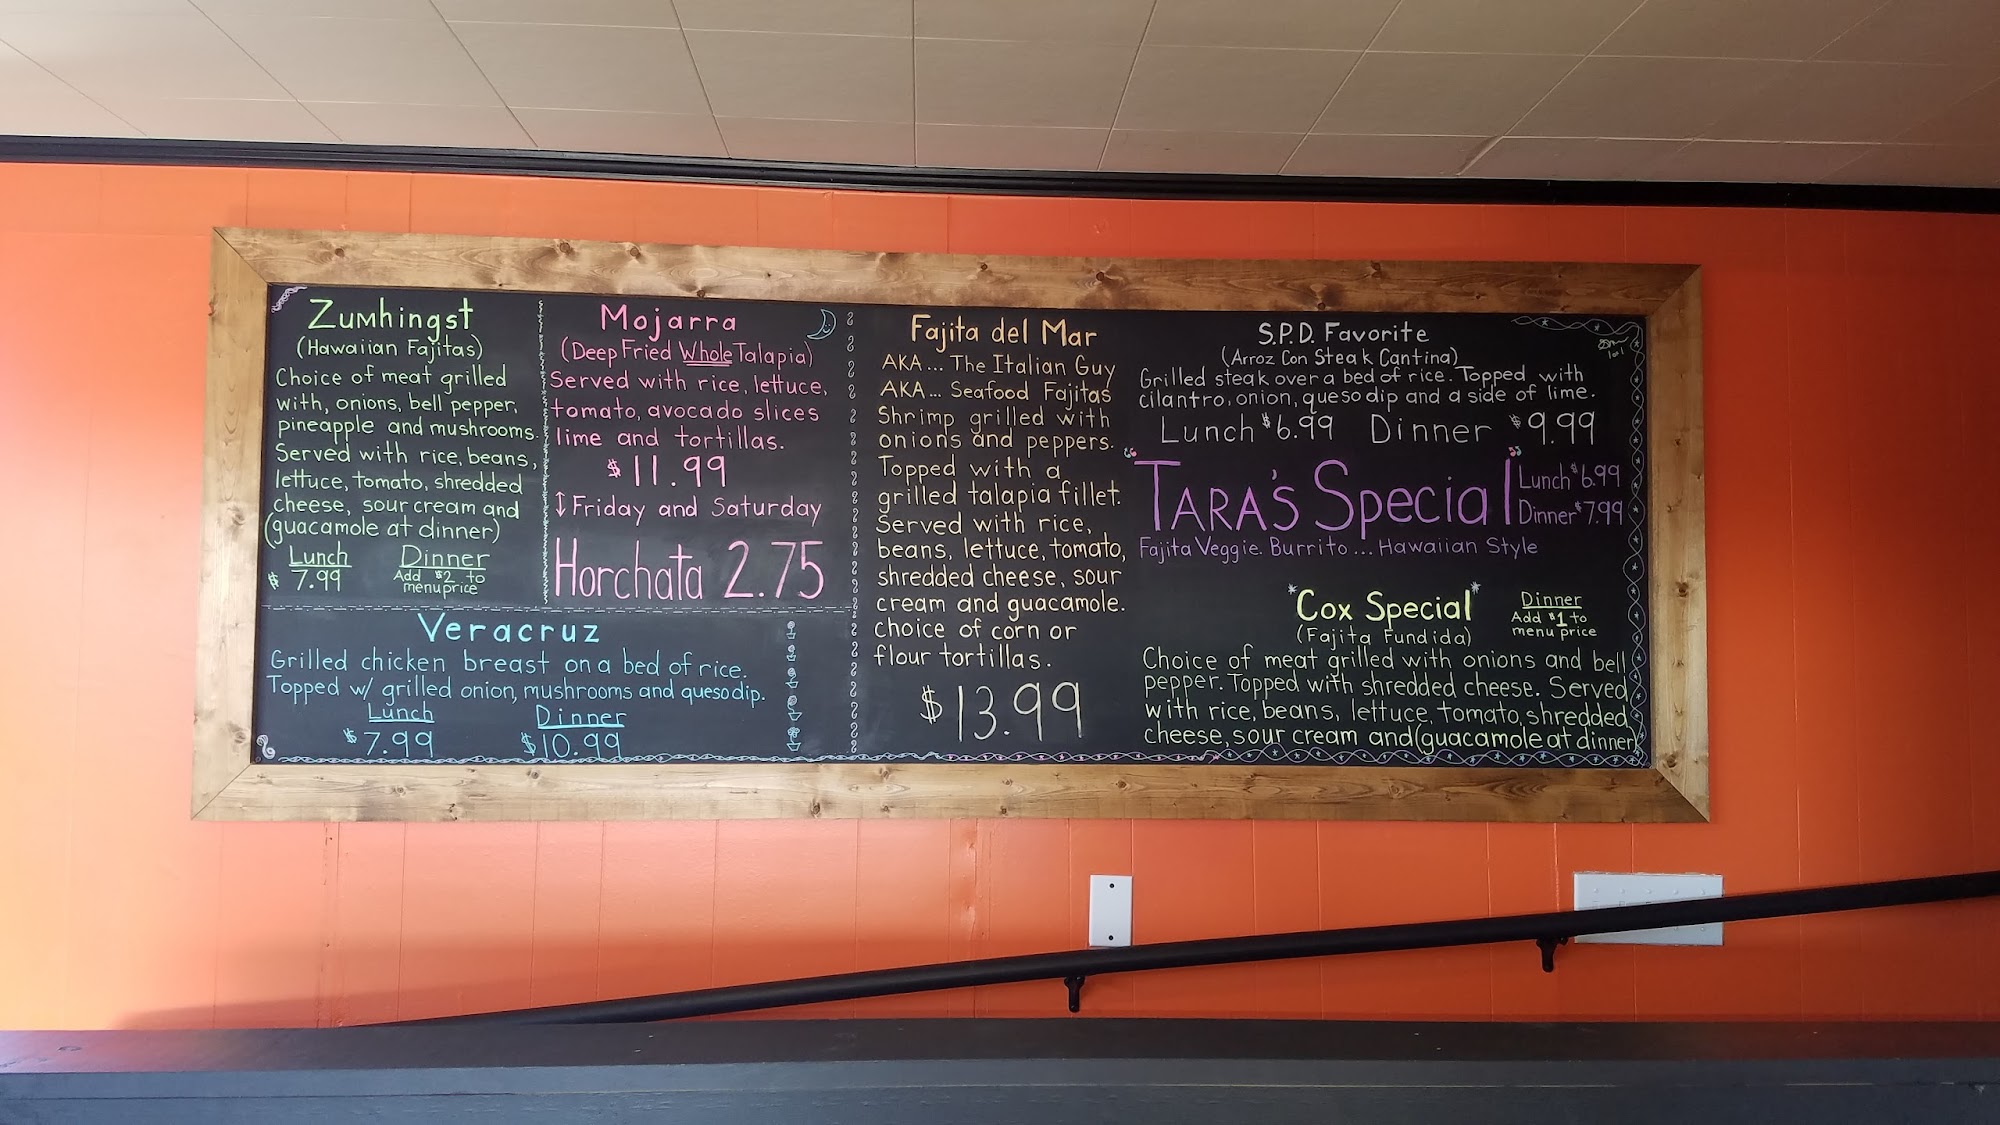 Zumhingst
(Hawaiian Fajitas)
Choice of meat grilled
with, onions, bell pepper,
pineapple and mushrooms.
Served with rice, beans,
lettuce, tomato, shredded
cheese, sour cream and
(guacamole at dinner)
Lunch Dinner
$ 7.99 Add $2 to
menu price
Mojarra
(Deep Fried Whole Talapia)
Served with rice, lettuce,
tomato, avocado slices
lime and tortillas.
$11.99
↕Friday and Saturday
Horchata 2.75
Veracruz
Grilled chicken breast on a bed of rice.
Topped w/ grilled onion, mushrooms and queso dip.
Lunch Dinner
$7.99 $10.99
Fajita del Mar
AKA... The Italian Guy
AKA... Seafood Fajitas
Shrimp grilled with
onions and peppers.
Topped with a
grilled talapia fillet.
Served with rice,
beans, lettuce, tomato,
shredded cheese, sour
cream and guacamole.
choice of corn or
flour tortillas.
$13.99
S.P.D. Favorite
(Arroz Con Steak Cantina)
Grilled steak over a bed of rice. Topped with
cilantro, onion, queso dip and a side of lime.
Lunch $6.99 Dinner $9.99
Tara's Special
Lunch $6.99
Dinner $7.99
Fajita Veggie Burrito... Hawaiian Style
"Cox Special"
(Fajita Fundida)
Dinner
Add $1 to
menu price
Choice of meat grilled with onions and bell
pepper. Topped with shredded cheese. Served
with rice, beans, lettuce, tomato, shredded
cheese, sour cream and (guacamole at dinner)